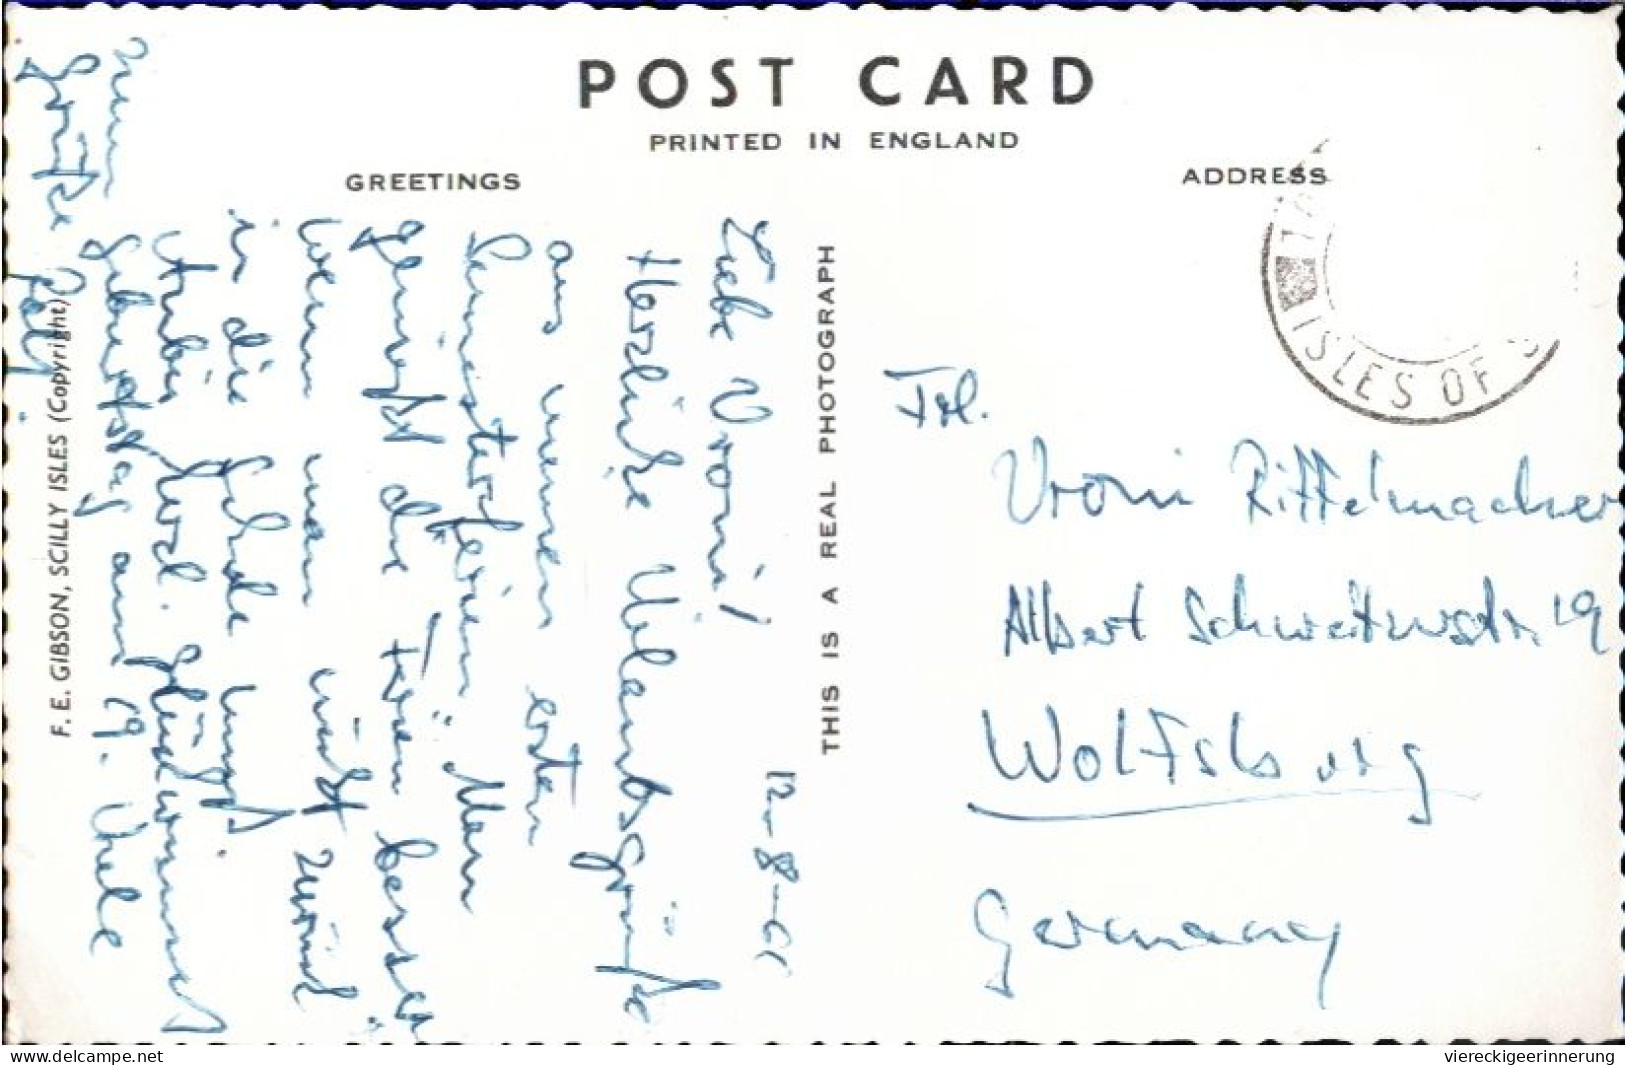 POST CARD
PRINTED IN ENGLAND
GREETINGS
ADDRESS
ISLES OF S
THIS IS A REAL PHOTOGRAPH
F. E. GIBSON, SCILLY ISLES (Copyright)
12-8-61
Liebe Vroni!
Herzliche Urlaubsgrüße
aus meinen ersten
"Semesterferien". Man
genießt die Ferien besser
wenn man nicht zurück
in die Schule muß.
herzl. Glückwunsch
Geburtstag am 19. Viele
Grüße
Frl.
Vroni Riffelmacher
Albert Schweitzerstr. 19
Wolfsburg
Germany
www.delcampe.net
viereckigeerinnerung